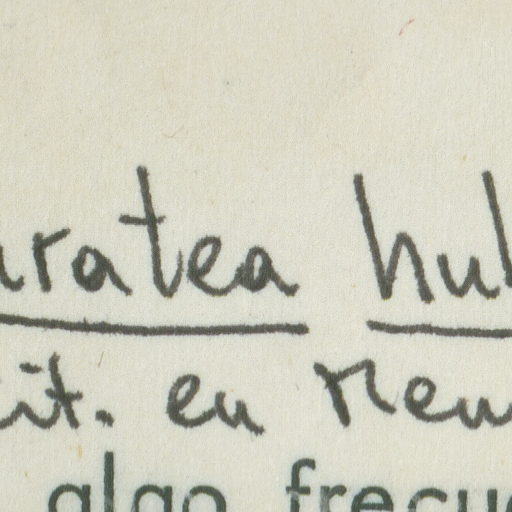 uratea hul
it. en Mem
algo frecue